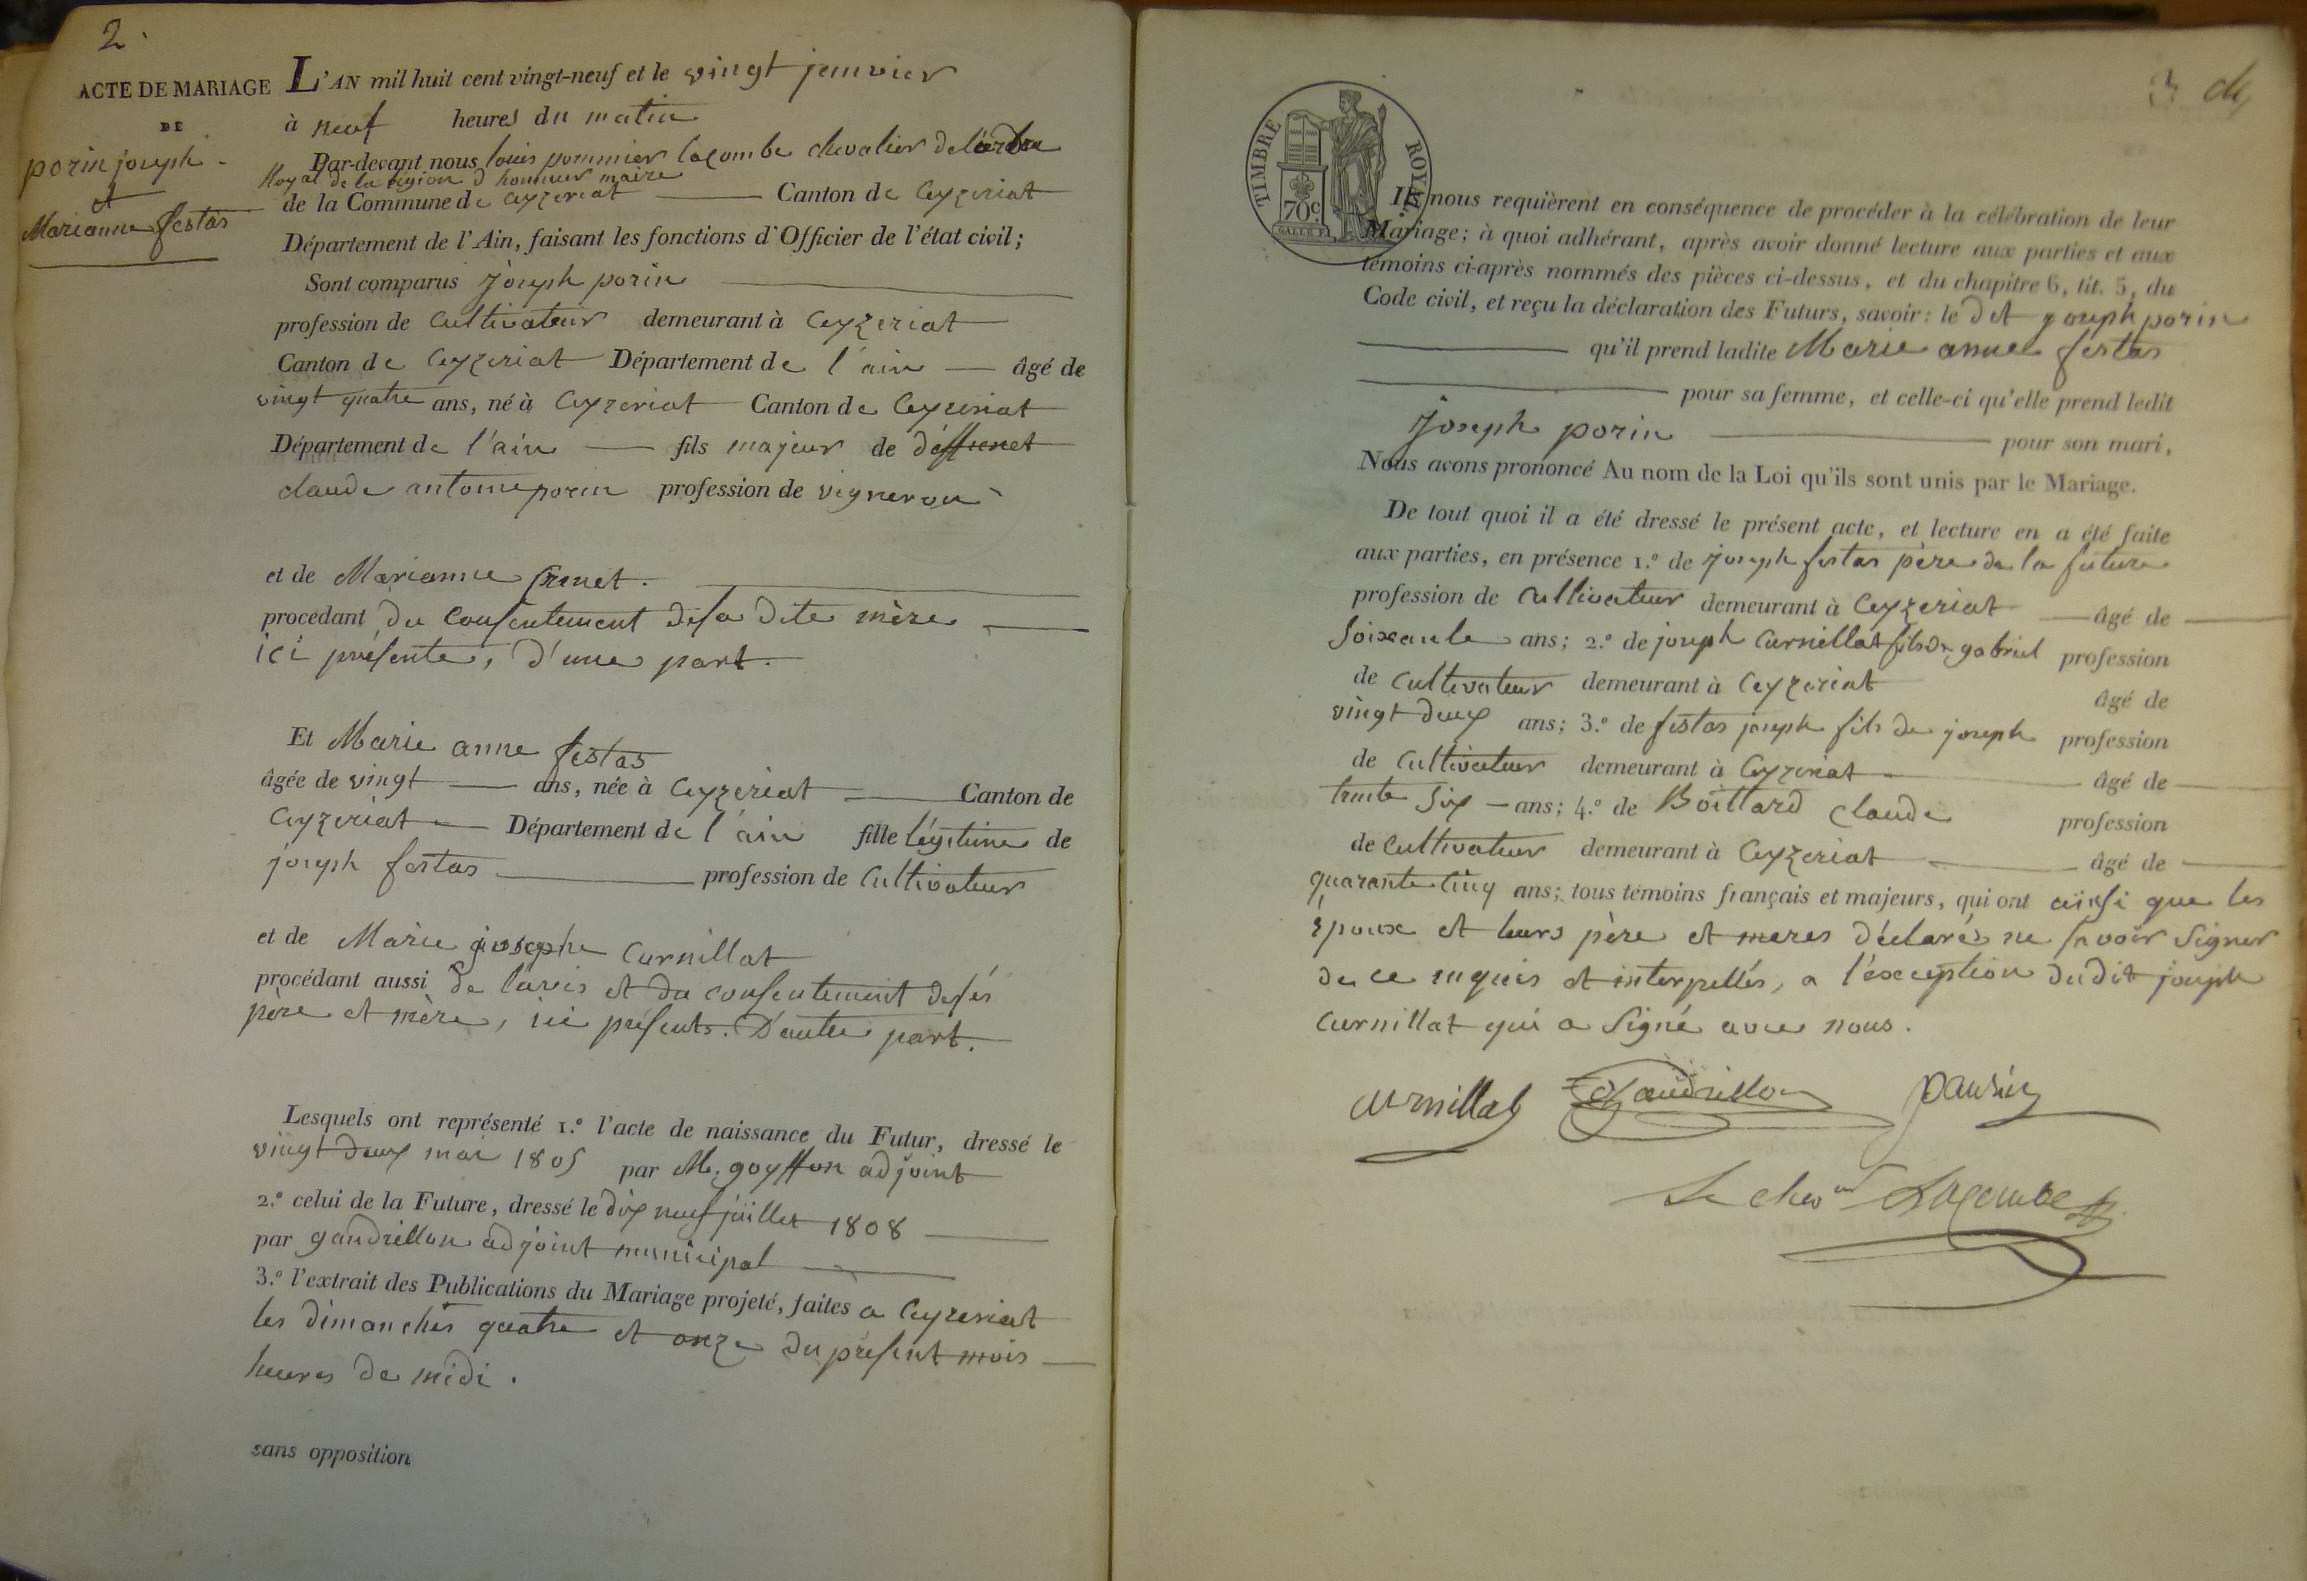 2.
ACTE DE MARIAGE
DE
porin joseph
et
Marianne festas
L'AN mil huit cent vingt-neuf et le vingt janvier
à neuf heures du matin
Par-devant nous louis pommier lacombe chevalier de l'ordre
Royal de la legion d'honneur maire
de la Commune de Ceyzeriat Canton de Ceyzeriat
Département de l'Ain, faisant les fonctions d'Officier de l'état civil;
Sont comparus joseph porin
profession de Cultivateur demeurant à Ceyzeriat
Canton de Ceyzeriat Département de l'ain âgé de
vingt quatre ans, né à Ceyzeriat Canton de Ceyzeriat
Département de l'ain fils majeur de deffunct
claude antoine porin profession de vigneron
et de Marianne frenet.
procédant du consentement de sa dite mère
ici présente, d'une part.
Et Marie anne festas
âgée de vingt ans, née à Ceyzériat Canton de
Ceyzeriat Département de l'ain fille légitime de
joseph festas profession de Cultivateur
et de Marie josephe Curnillat
procédant aussi de l'avis et du consentement de ses
père et mère, ici présents. D'autre part.
Lesquels ont représenté 1.º l'acte de naissance du Futur, dressé le
vingt deux mai 1805 par M. goyffon adjoint
2.º celui de la Future, dressé le dix neuf juillet 1808
par gaudrillon adjoint municipal
3.º l'extrait des Publications du Mariage projeté, faites a Ceyzeriat
les dimanches quatre et onze du présent mois
heures de midi.
sans opposition
3
TIMBRE ROYAL
70c
Ils nous requièrent en conséquence de procéder à la célébration de leur
Mariage; à quoi adhérant, après avoir donné lecture aux parties et aux
témoins ci-après nommés des pièces ci-dessus, et du chapitre 6, tit. 5, du
Code civil, et reçu la déclaration des Futurs, savoir: le dit joseph porin
qu'il prend ladite Marie anne festas
pour sa femme, et celle-ci qu'elle prend ledit
Joseph porin pour son mari,
Nous avons prononcé Au nom de la Loi qu'ils sont unis par le Mariage.
De tout quoi il a été dressé le présent acte, et lecture en a été faite
aux parties, en présence 1.º de joseph festas père de la future
profession de Cultivateur demeurant à Ceyzeriat âgé de
soixante ans; 2.º de joseph Curnillat fils de gabriel profession
de Cultivateur demeurant à Ceyzeriat âgé de
vingt deux ans; 3.º de festas joseph fils de joseph profession
de Cultivateur demeurant à Ceyzeriat âgé de
trente six ans; 4.º de Boittard Claude profession
de Cultivateur demeurant à Ceyzeriat âgé de
quarante cinq ans; tous témoins français et majeurs, qui ont ainsi que les
époux et leurs père et meres déclarés ne savoir signer
de ce requis et interpellés, a l'éxception du dit joseph
Curnillat qui a signé avec nous.
Curnillat Gaudrillon
Le chev Lacombe